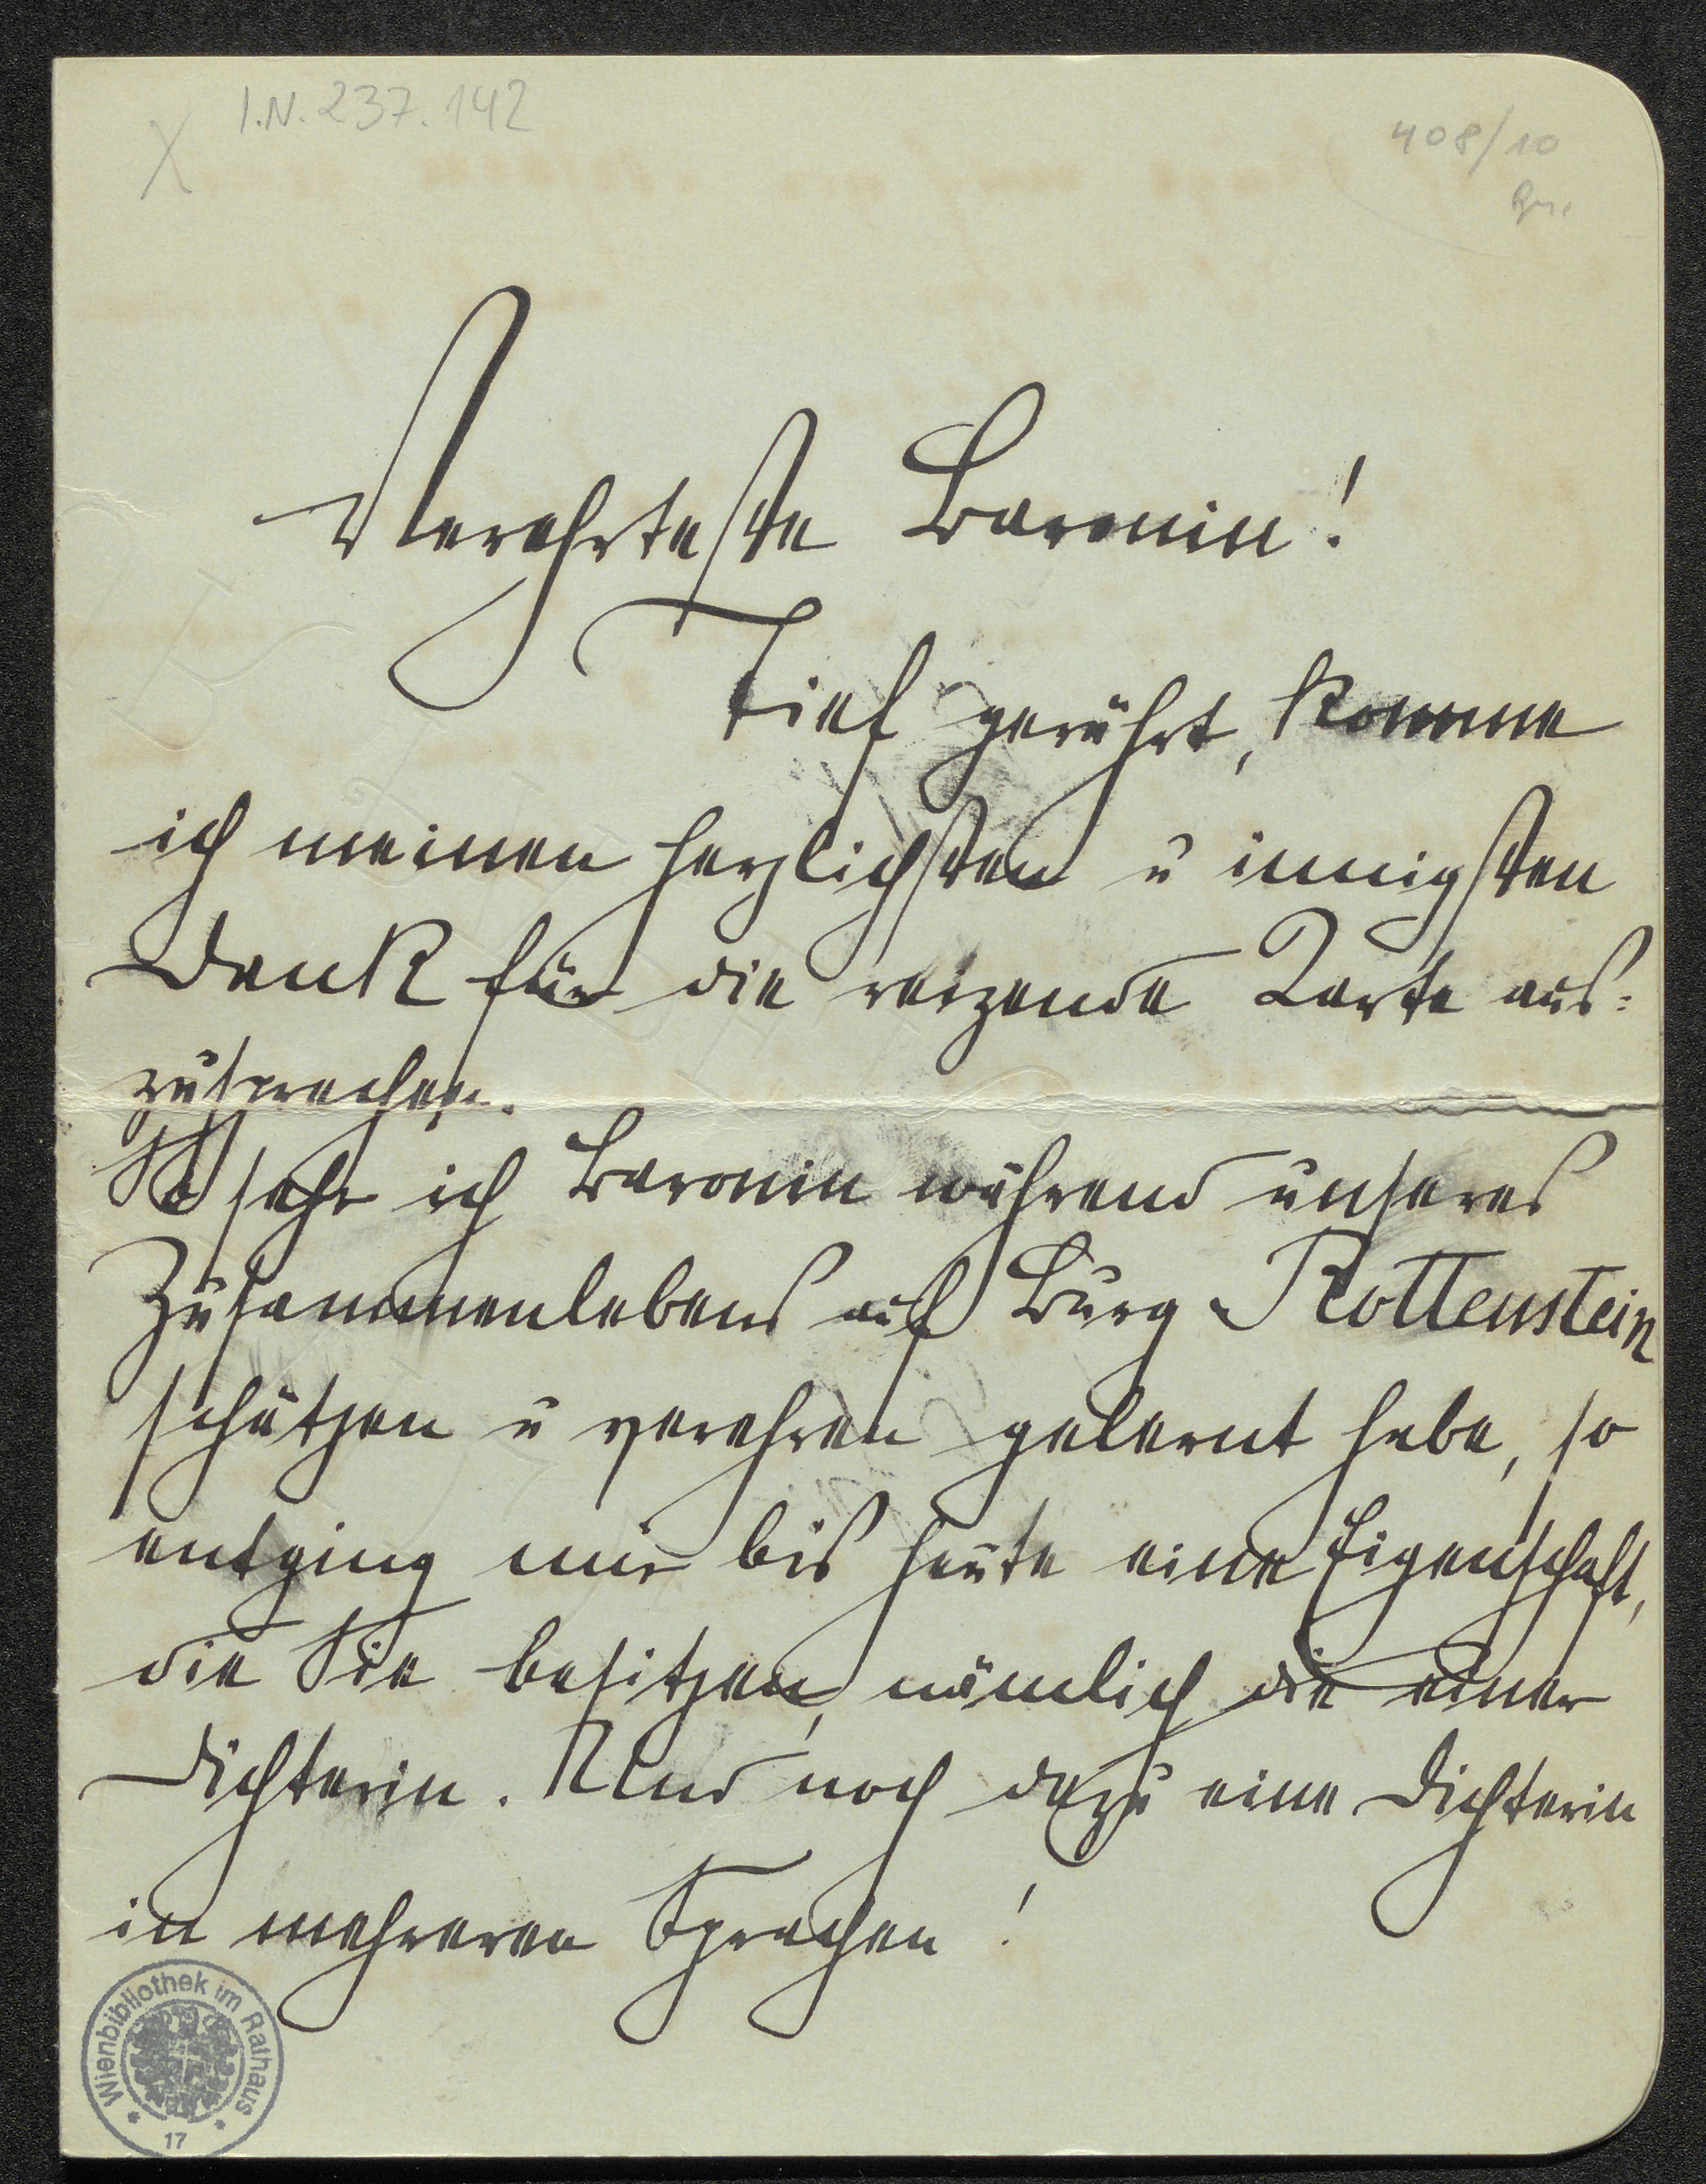 I.N. 237.142
408/10
Verehrteste Baronin!
Tief gerührt, komme
ich meinen herzlichsten u innigsten
Dank für die reizende Karte aus=
zusprechen.
So sehr ich Baronin während unseres
Zusammenlebens auf Burg Rottenstein
schätzen u verehren gelernt habe, so
entging mir bis heute eine Eigenschaft,
die Sie besitzen, nämlich die einer
Dichterin. Und noch dazu eine Dichterin
in mehreren Sprachen!
Wienbibliothek im Rathaus
17